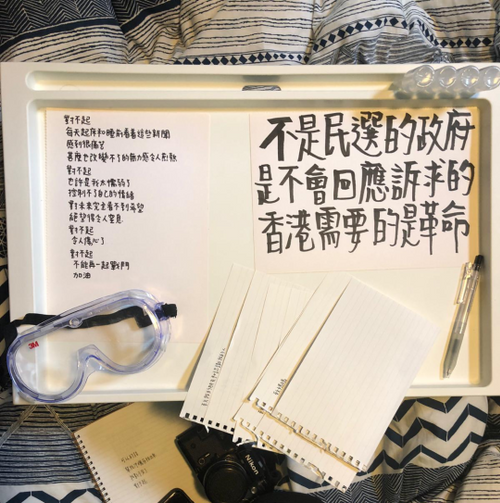 對不起
每天起床和睡前看着這些新聞
感到很痛苦
甚麼也改變不了的無力感令人煎熬
對不起
也許是我太懦弱了
控制不了自己的情緒
對未來完全看不到希望
絕望得令人窒息
對不起
令人傷心了
對不起
不能再一起戰鬥
加油
不是民選的政府
是不會回應訴求的
香港需要的是革命
3M
Nikon